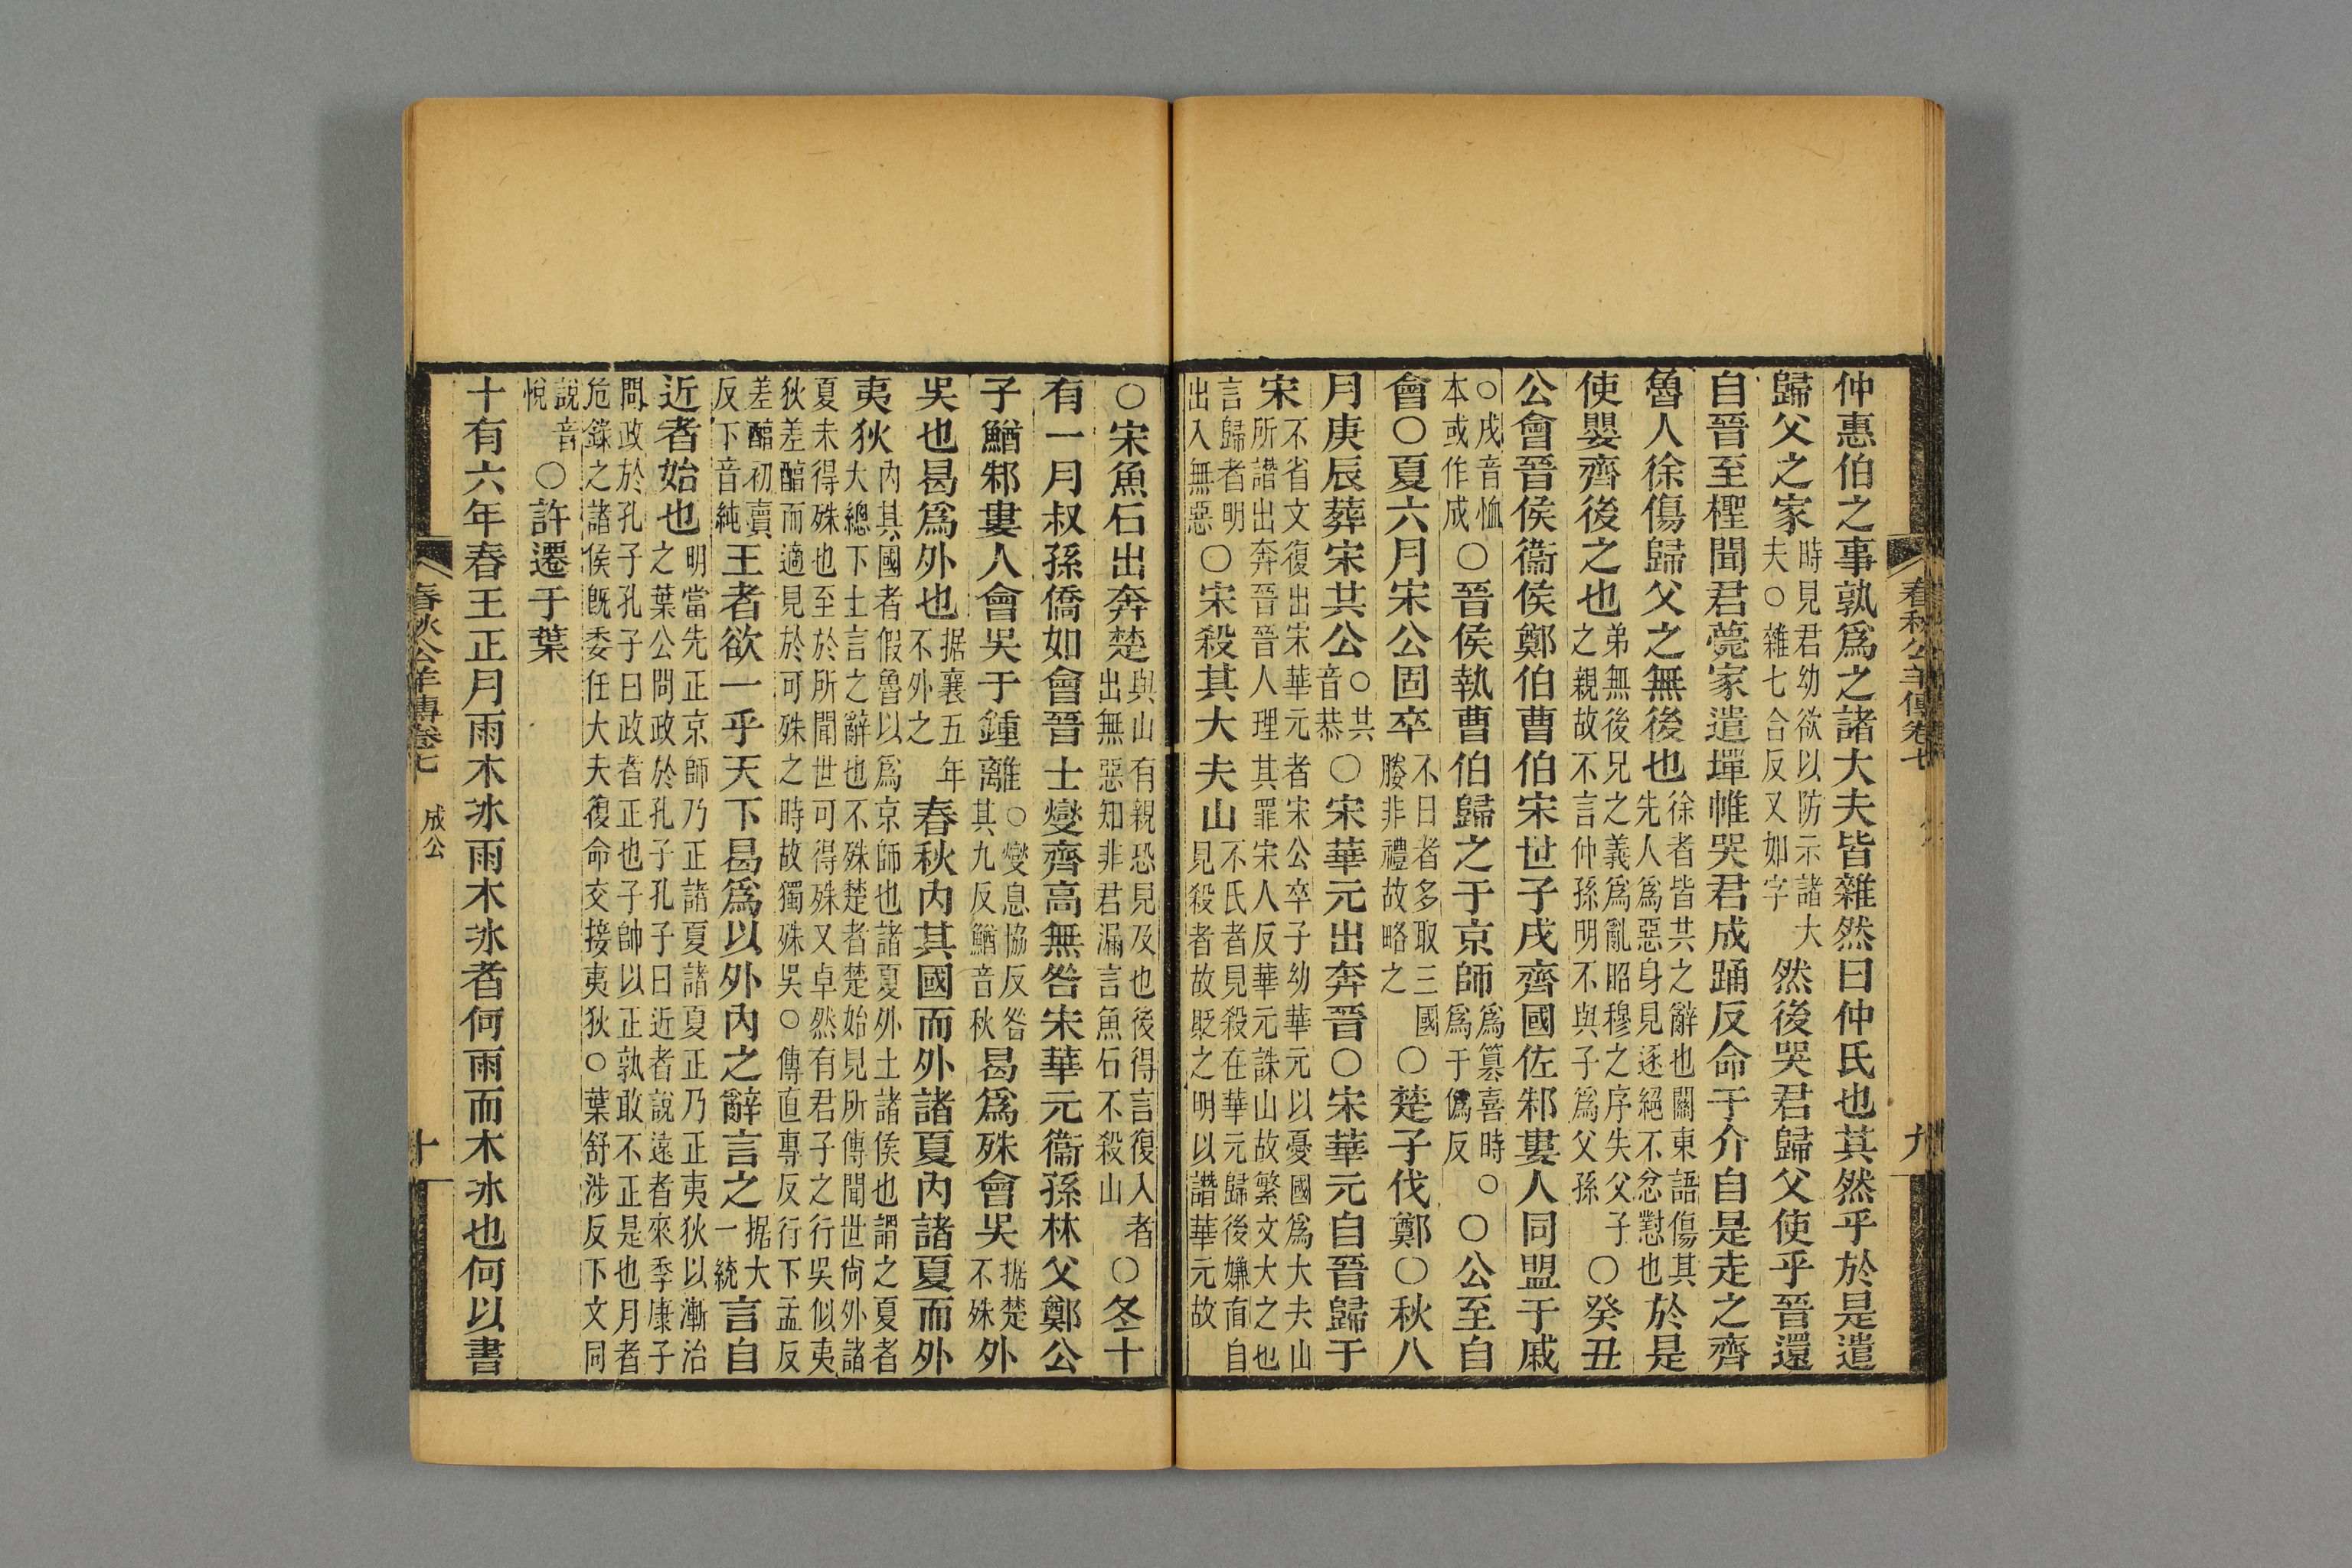 春秋公羊傳卷七
九
仲惠伯之事孰爲之諸大夫皆雜然曰仲氏也其然乎於是遣
歸父之家時見君幼欲以防示諸大夫○雜七合反又如字然後哭君歸父使乎晉還
自晉至檉聞君薨家遣墠帷哭君成踊反命于介自是走之齊
魯人徐傷歸父之無後也徐者皆共之辭也關東語傷其先人爲惡身見逐絕不忿懟也於是
使嬰齊後之也弟無後兄之義爲亂昭穆之序失父子之親故不言仲孫明不與子爲父孫○癸丑
公會晉侯衞侯鄭伯曹伯宋世子戌齊國佐邾婁人同盟于戚
○戌音恤本或作成○晉侯執曹伯歸之于京師爲篡喜時○爲于僞反○公至自
會○夏六月宋公固卒不日者多取三國媵非禮故略之○楚子伐鄭○秋八
月庚辰葬宋共公○共音恭○宋華元出奔晉○宋華元自晉歸于
宋不省文復出宋華元者宋公卒子幼華元以憂國爲大夫山所譖出奔晉晉人理其罪宋人反華元誅山故繁文大之也
言歸者明出入無惡○宋殺其大夫山不氏者見殺在華元歸後嫌直自見殺者故貶之明以譖華元故
○宋魚石出奔楚與山有親恐見及也後得言復入者出無惡知非君漏言魚石不殺山○冬十
有一月叔孫僑如會晉士燮齊高無咎宋華元衞孫林父鄭公
子鰌邾婁人會吳于鍾離○燮息協反咎其九反鰌音秋曷爲殊會吳据楚不殊外
吳也曷爲外也据襄五年不外之春秋內其國而外諸夏內諸夏而外
夷狄內其國者假魯以爲京師也諸夏外土諸侯也謂之夏者大總下土言之辭也不殊楚者楚始見所傳聞世尚外諸
夏未得殊也至於所聞世可得殊又卓然有君子之行吳似夷狄差醇而適見於可殊之時故獨殊吳○傳直專反行下孟反
差初賣反下音純王者欲一乎天下曷爲以外內之辭言之据大一統言自
近者始也明當先正京師乃正諸夏諸夏正乃正夷狄以漸治之葉公問政於孔子孔子曰近者說遠者來季康子
問政於孔子孔子曰政者正也子帥以正孰敢不正是也月者危錄之諸侯旣委任大夫復命交接夷狄○葉舒涉反下文同
說音悅○許遷于葉
十有六年春王正月雨木冰雨木冰者何雨而木冰也何以書
春秋公羊傳卷七
成公
十